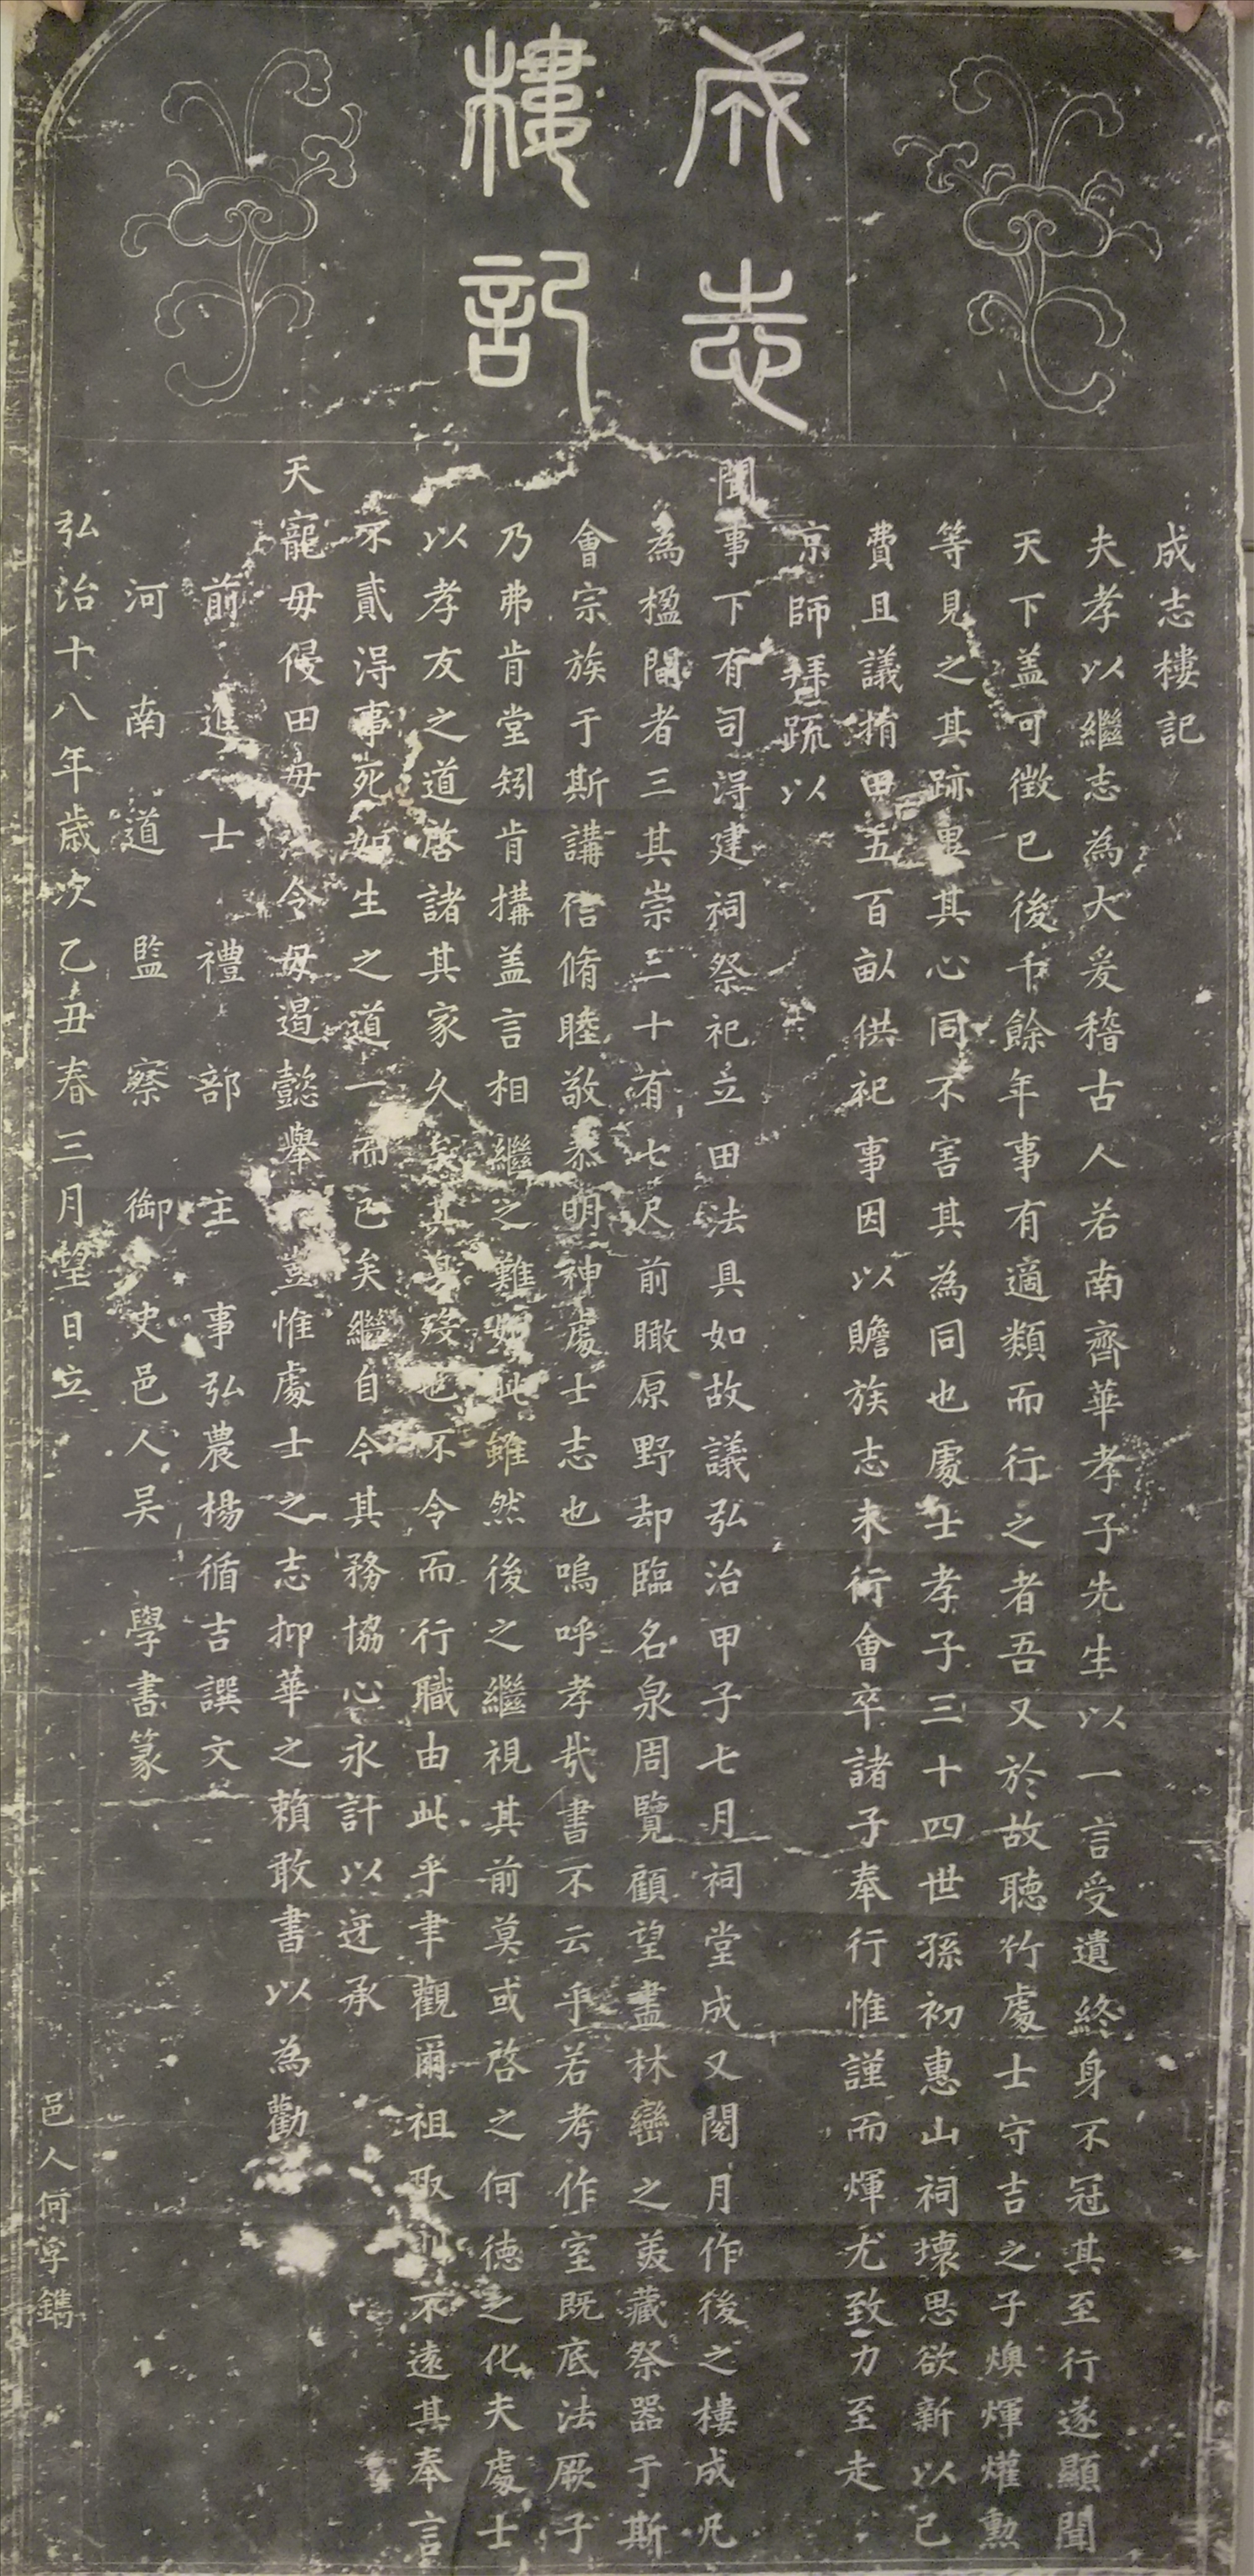 成志樓記
成志樓記
夫孝以繼志為大爰稽古人若南齊華孝子先生以一言受遺終身不冠其至行遂顯聞
天下盖可徵已後千餘年事有適類而行之者吾又於故聽竹處士守吉之子燠煇爟勲
等見之其跡異其心同不害其為同也處士孝子三十四世孫初惠山祠壞思欲新以己
費且議捐田五百畝供祀事因以贍族志未行會卒諸子奉行惟謹而煇尤致力至走
京師拜䟽以
聞事下有司淂建祠祭祀立田法具如故議弘治甲子七月祠堂成又閱月作後之樓成凡
為楹間者三其崇三十有七尺前瞰原野却臨名泉周覽顧望盡林巒之美藏祭器于斯
會宗族于斯講信脩睦敬恭明神處士志也嗚呼孝㢤書不云乎若考作室既底法厥子
乃弗肯堂矧肯搆盖言相繼之難如此雖然後之繼視其前莫或啓之何德之化夫處士
以孝友之道啓諸其家久矣其身殁也不令而行職由此乎聿觀爾祖取則不遠其奉言
不貳淂事死如生之道一而已矣繼自今其務協心永計以迓承
天寵毋侵田毋令毋遏懿舉豈惟處士之志抑華之賴敢書以為勸
前進士禮部主事弘農楊循吉譔文
河南道監察御史邑人吴學書篆
弘治十八年歳次乙丑春三月望日立
邑人何學鐫